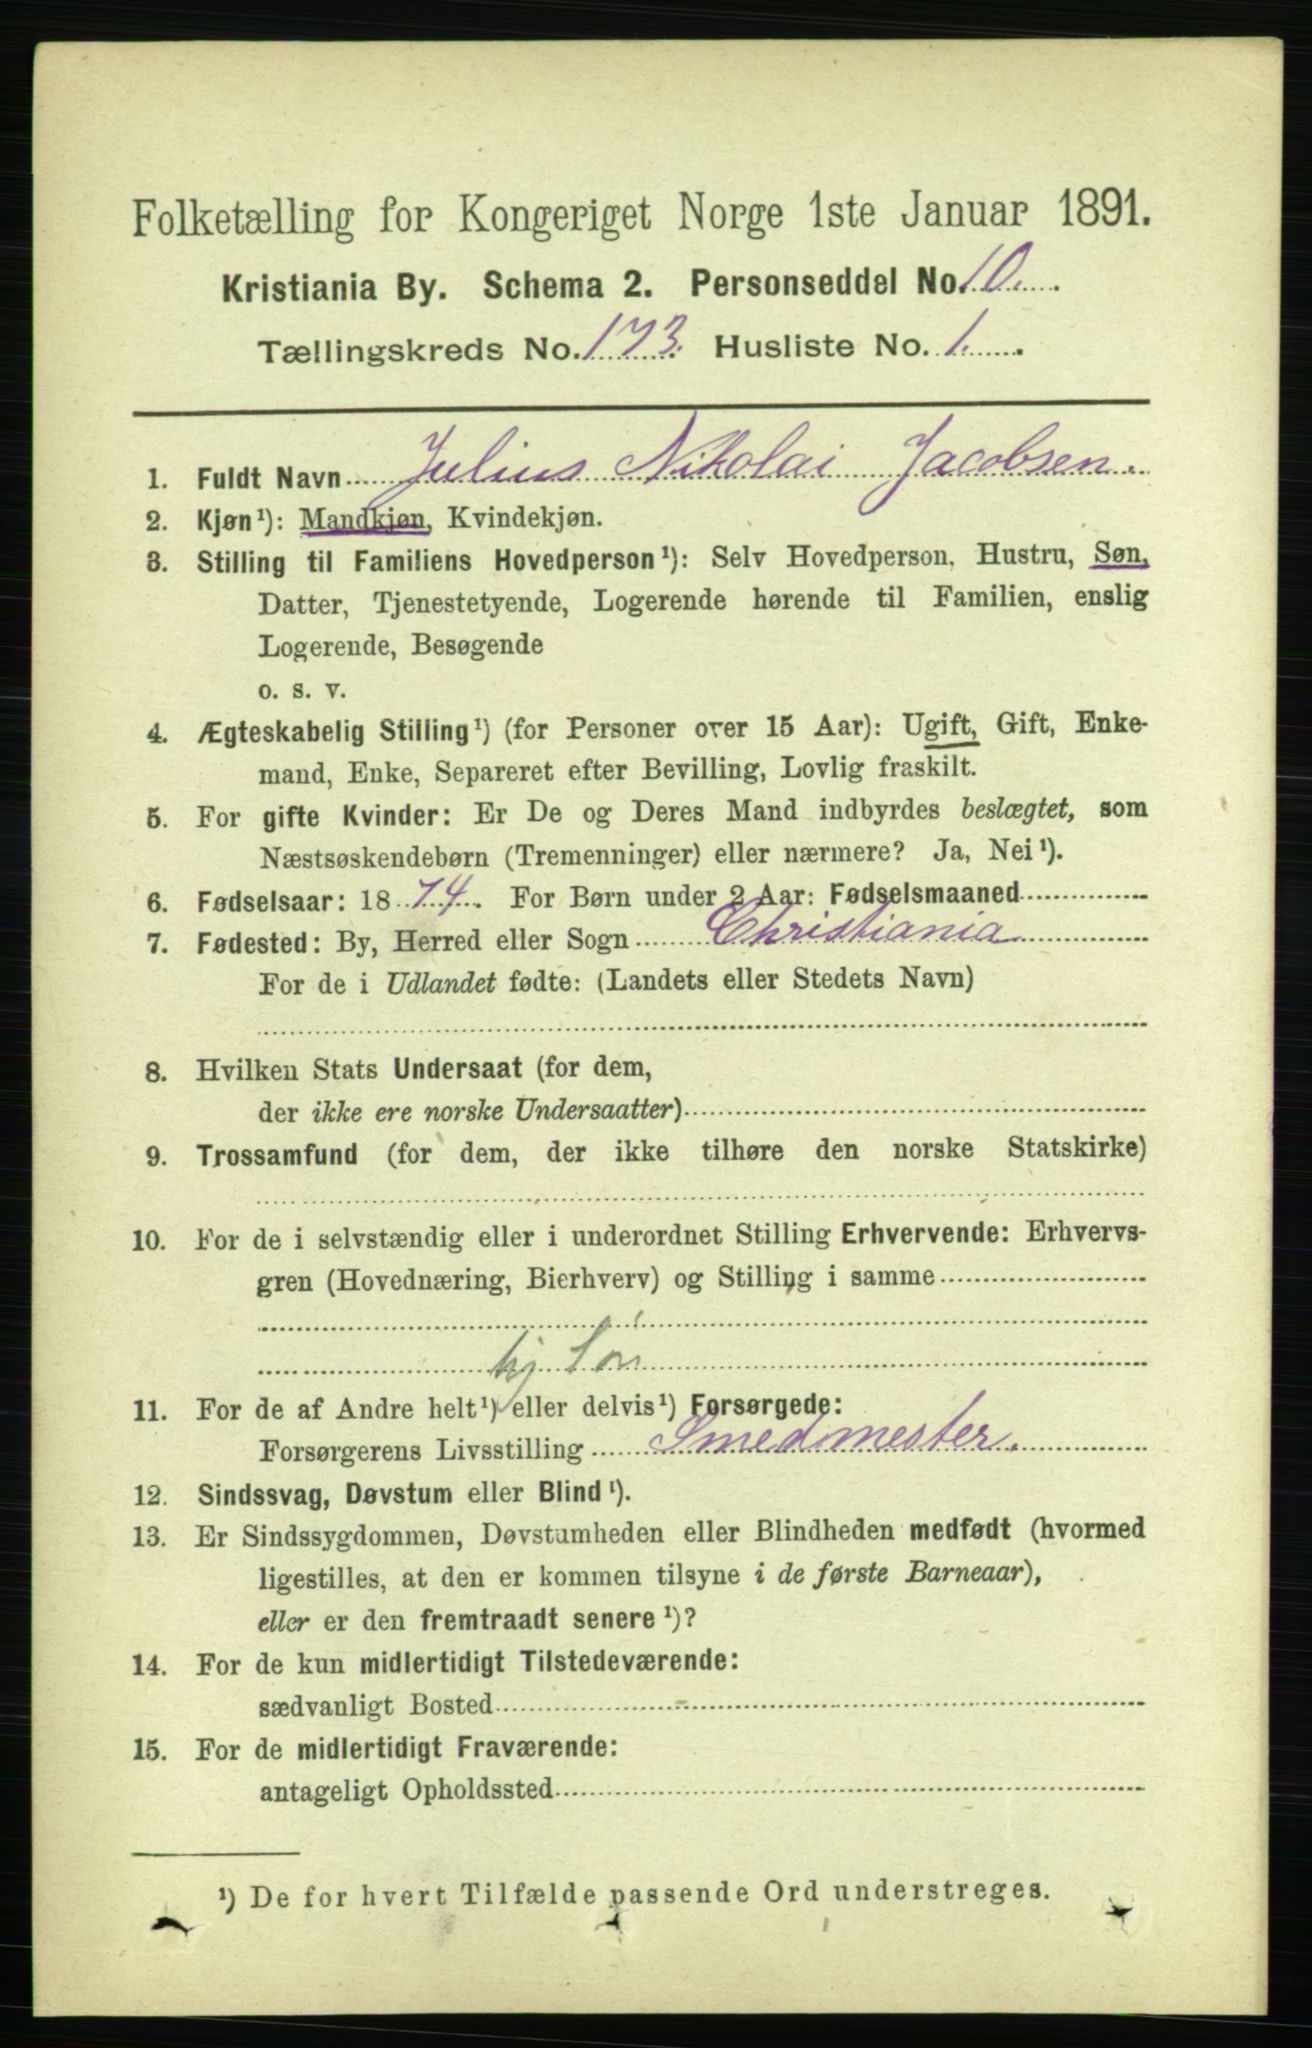 Folketælling for Kongeriget Norge 1ste Januar 1891.
Kristiania By. Schema 2. Personseddel No. 10.
Tællingskreds No. 173. Husliste No. 1.
1. Fuldt Navn Julius Nikolai Jacobsen.
2. Kjøn¹): Mandkjøn, Kvindekjøn.
3. Stilling til Familiens Hovedperson¹): Selv Hovedperson, Hustru, Søn,
Datter, Tjenestetyende, Logerende hørende til Familien, enslig
Logerende, Besøgende
o. s. v.
4. Ægteskabelig Stilling¹) (for Personer over 15 Aar): Ugift, Gift, Enke-
mand, Enke, Separeret efter Bevilling, Lovlig fraskilt.
5. For gifte Kvinder: Er De og Deres Mand indbyrdes beslægtet, som
Næstsøskendebørn (Tremenninger) eller nærmere? Ja, Nei¹).
6. Fødselsaar: 1874. For Børn under 2 Aar: Fødselsmaaned
7. Fødested: By, Herred eller Sogn Christiania
For de i Udlandet fødte: (Landets eller Stedets Navn)
8. Hvilken Stats Undersaat (for dem,
der ikke ere norske Undersaatter)
9. Trossamfund (for dem, der ikke tilhøre den norske Statskirke)
10. For de i selvstændig eller i underordnet Stilling Erhvervende: Erhvervs-
gren (Hovednæring, Bierhverv) og Stilling i samme
11. For de af Andre helt¹) eller delvis¹) Forsørgede:
Forsørgerens Livsstilling Smedmester.
12. Sindssvag, Døvstum eller Blind¹).
13. Er Sindssygdommen, Døvstumheden eller Blindheden medfødt (hvormed
ligestilles, at den er kommen tilsyne i de første Barneaar),
eller er den fremtraadt senere¹)?
14. For de kun midlertidigt Tilstedeværende:
sædvanligt Bosted
15. For de midlertidigt Fraværende:
antageligt Opholdssted
¹) De for hvert Tilfælde passende Ord understreges.